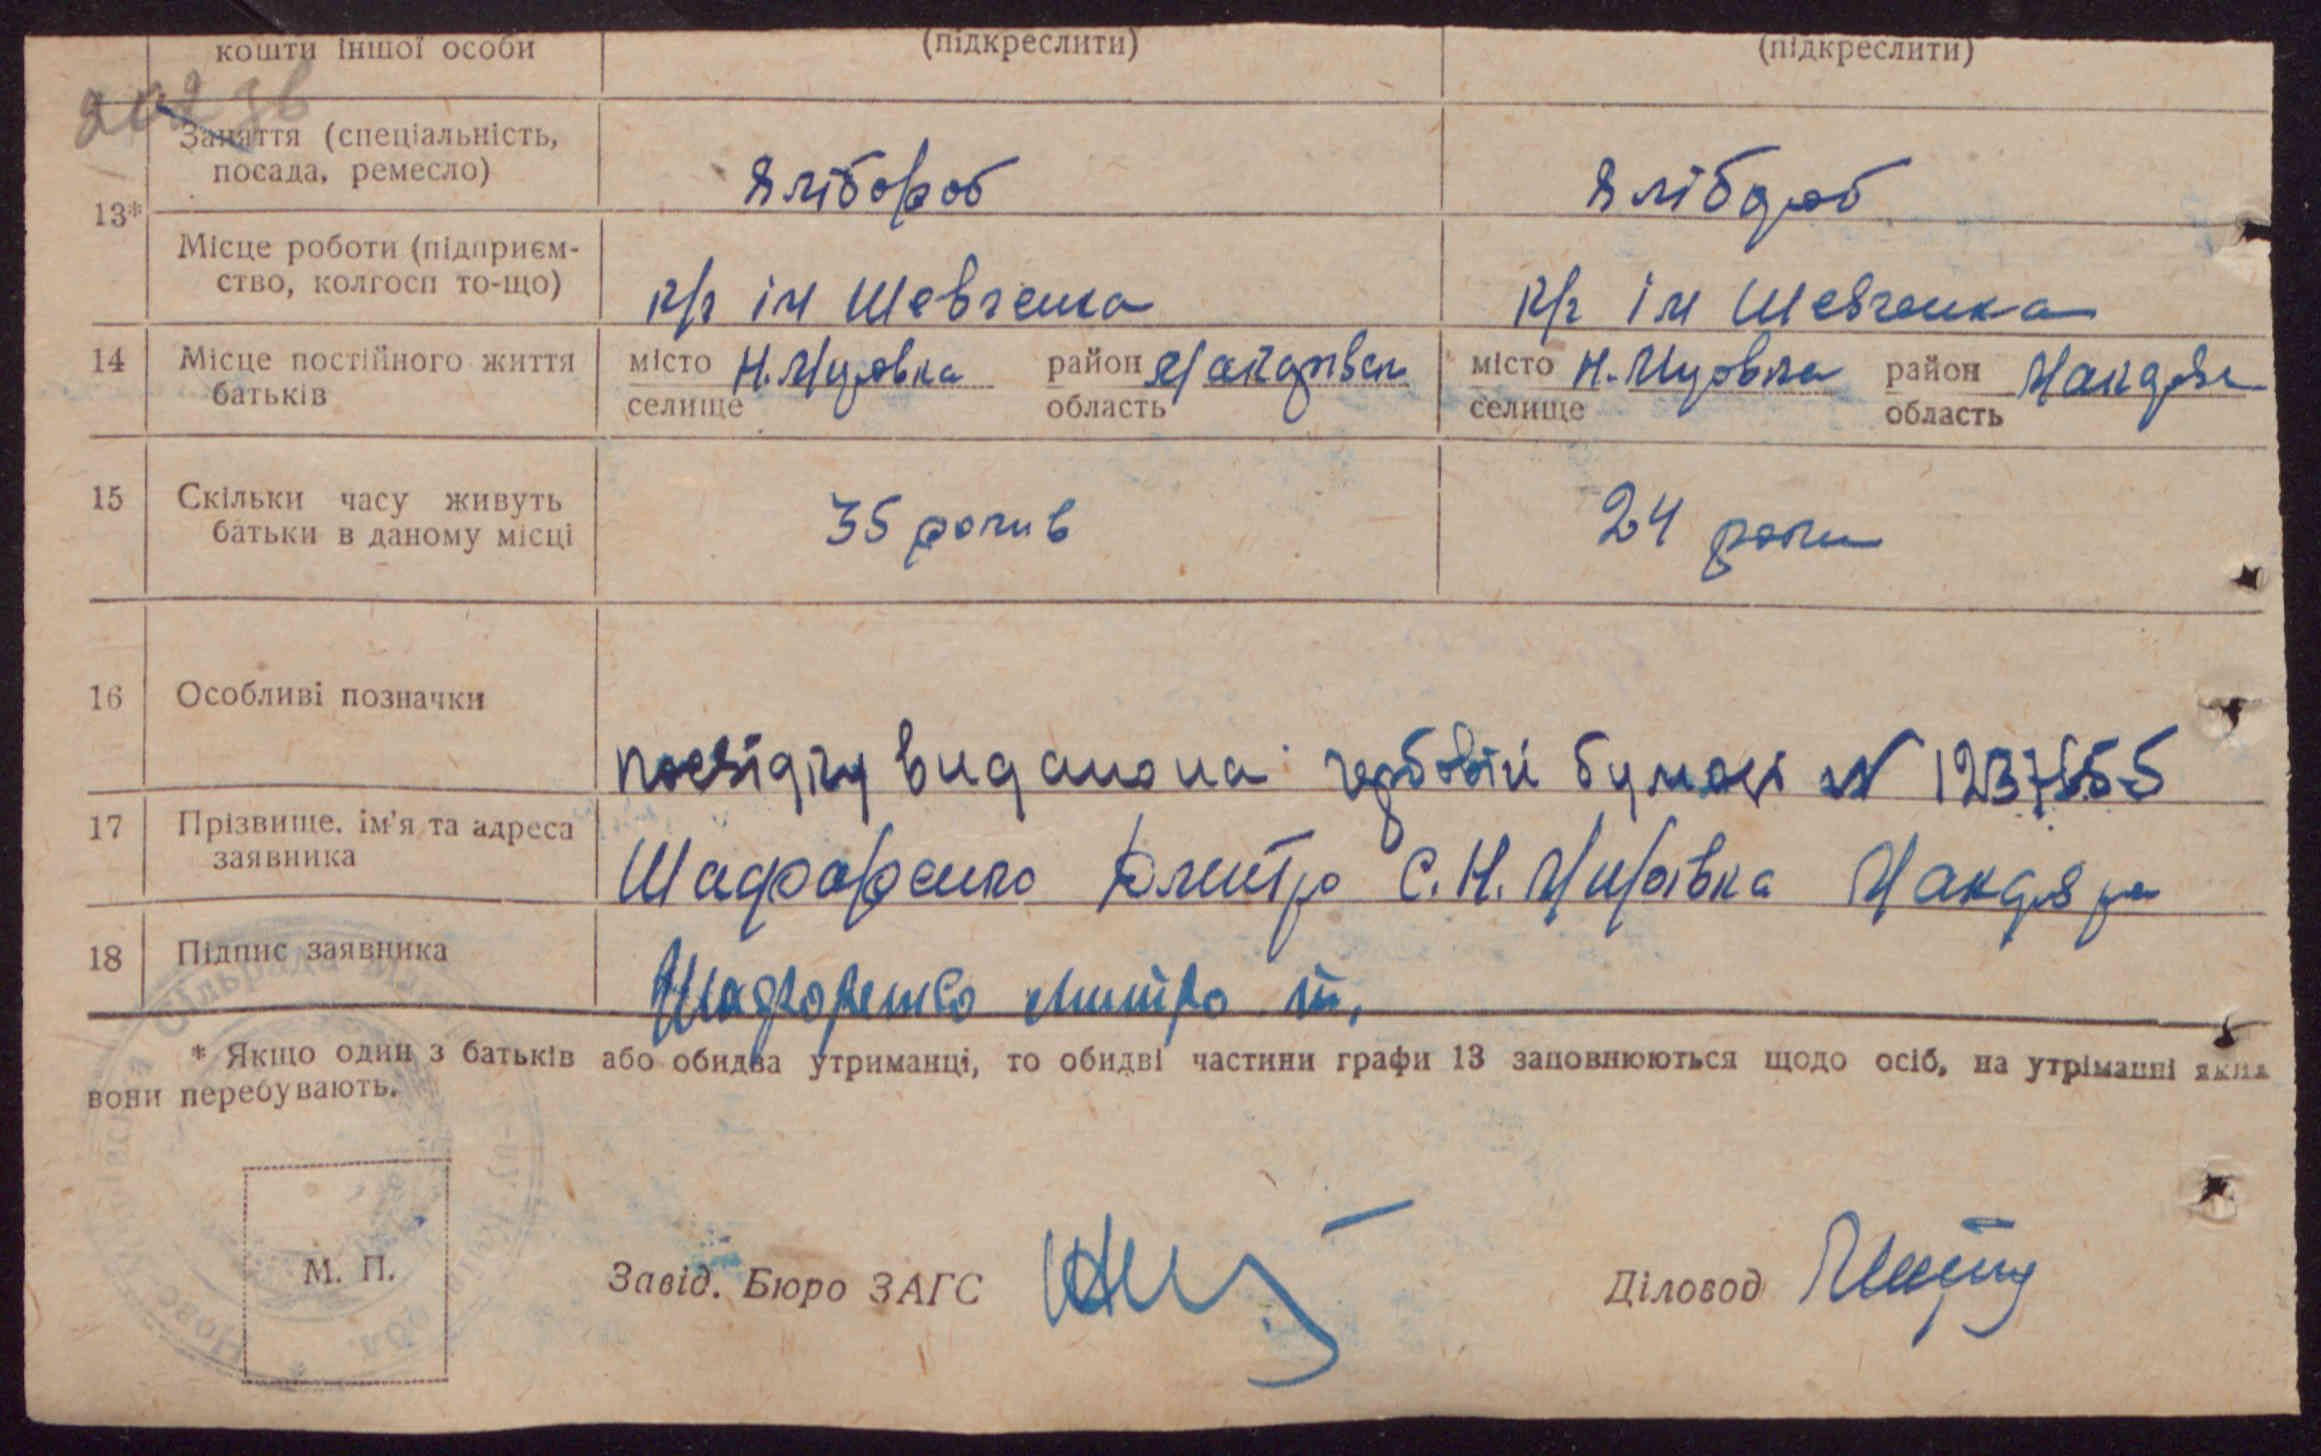 кошти іншої особи (підкреслити) (підкреслити)
Заняття (спеціальність,
посада, ремесло) хлібороб хлібороб
13*
Місце роботи (підприєм-
ство, колгосп то-що) к/г ім Шевченка к/г ім Шевченка
14 Місце постійного життя місто район місто район
батьків селище область селище область
15 Скільки часу живуть
батьки в даному місці 35 років 24 роки
16 Особливі позначки
видано на гербовій бумазі №
17 Прізвище, ім'я та адреса
заявника Шафоренко Дмитро с. Н.
18 Підпис заявника
Шафоренко
* Якщо один з батьків або обидва утриманці, то обидві частини графи 13 заповнюються щодо осіб, на утріманні яких
вони перебувають.
М. П. Завід. Бюро ЗАГС Діловод